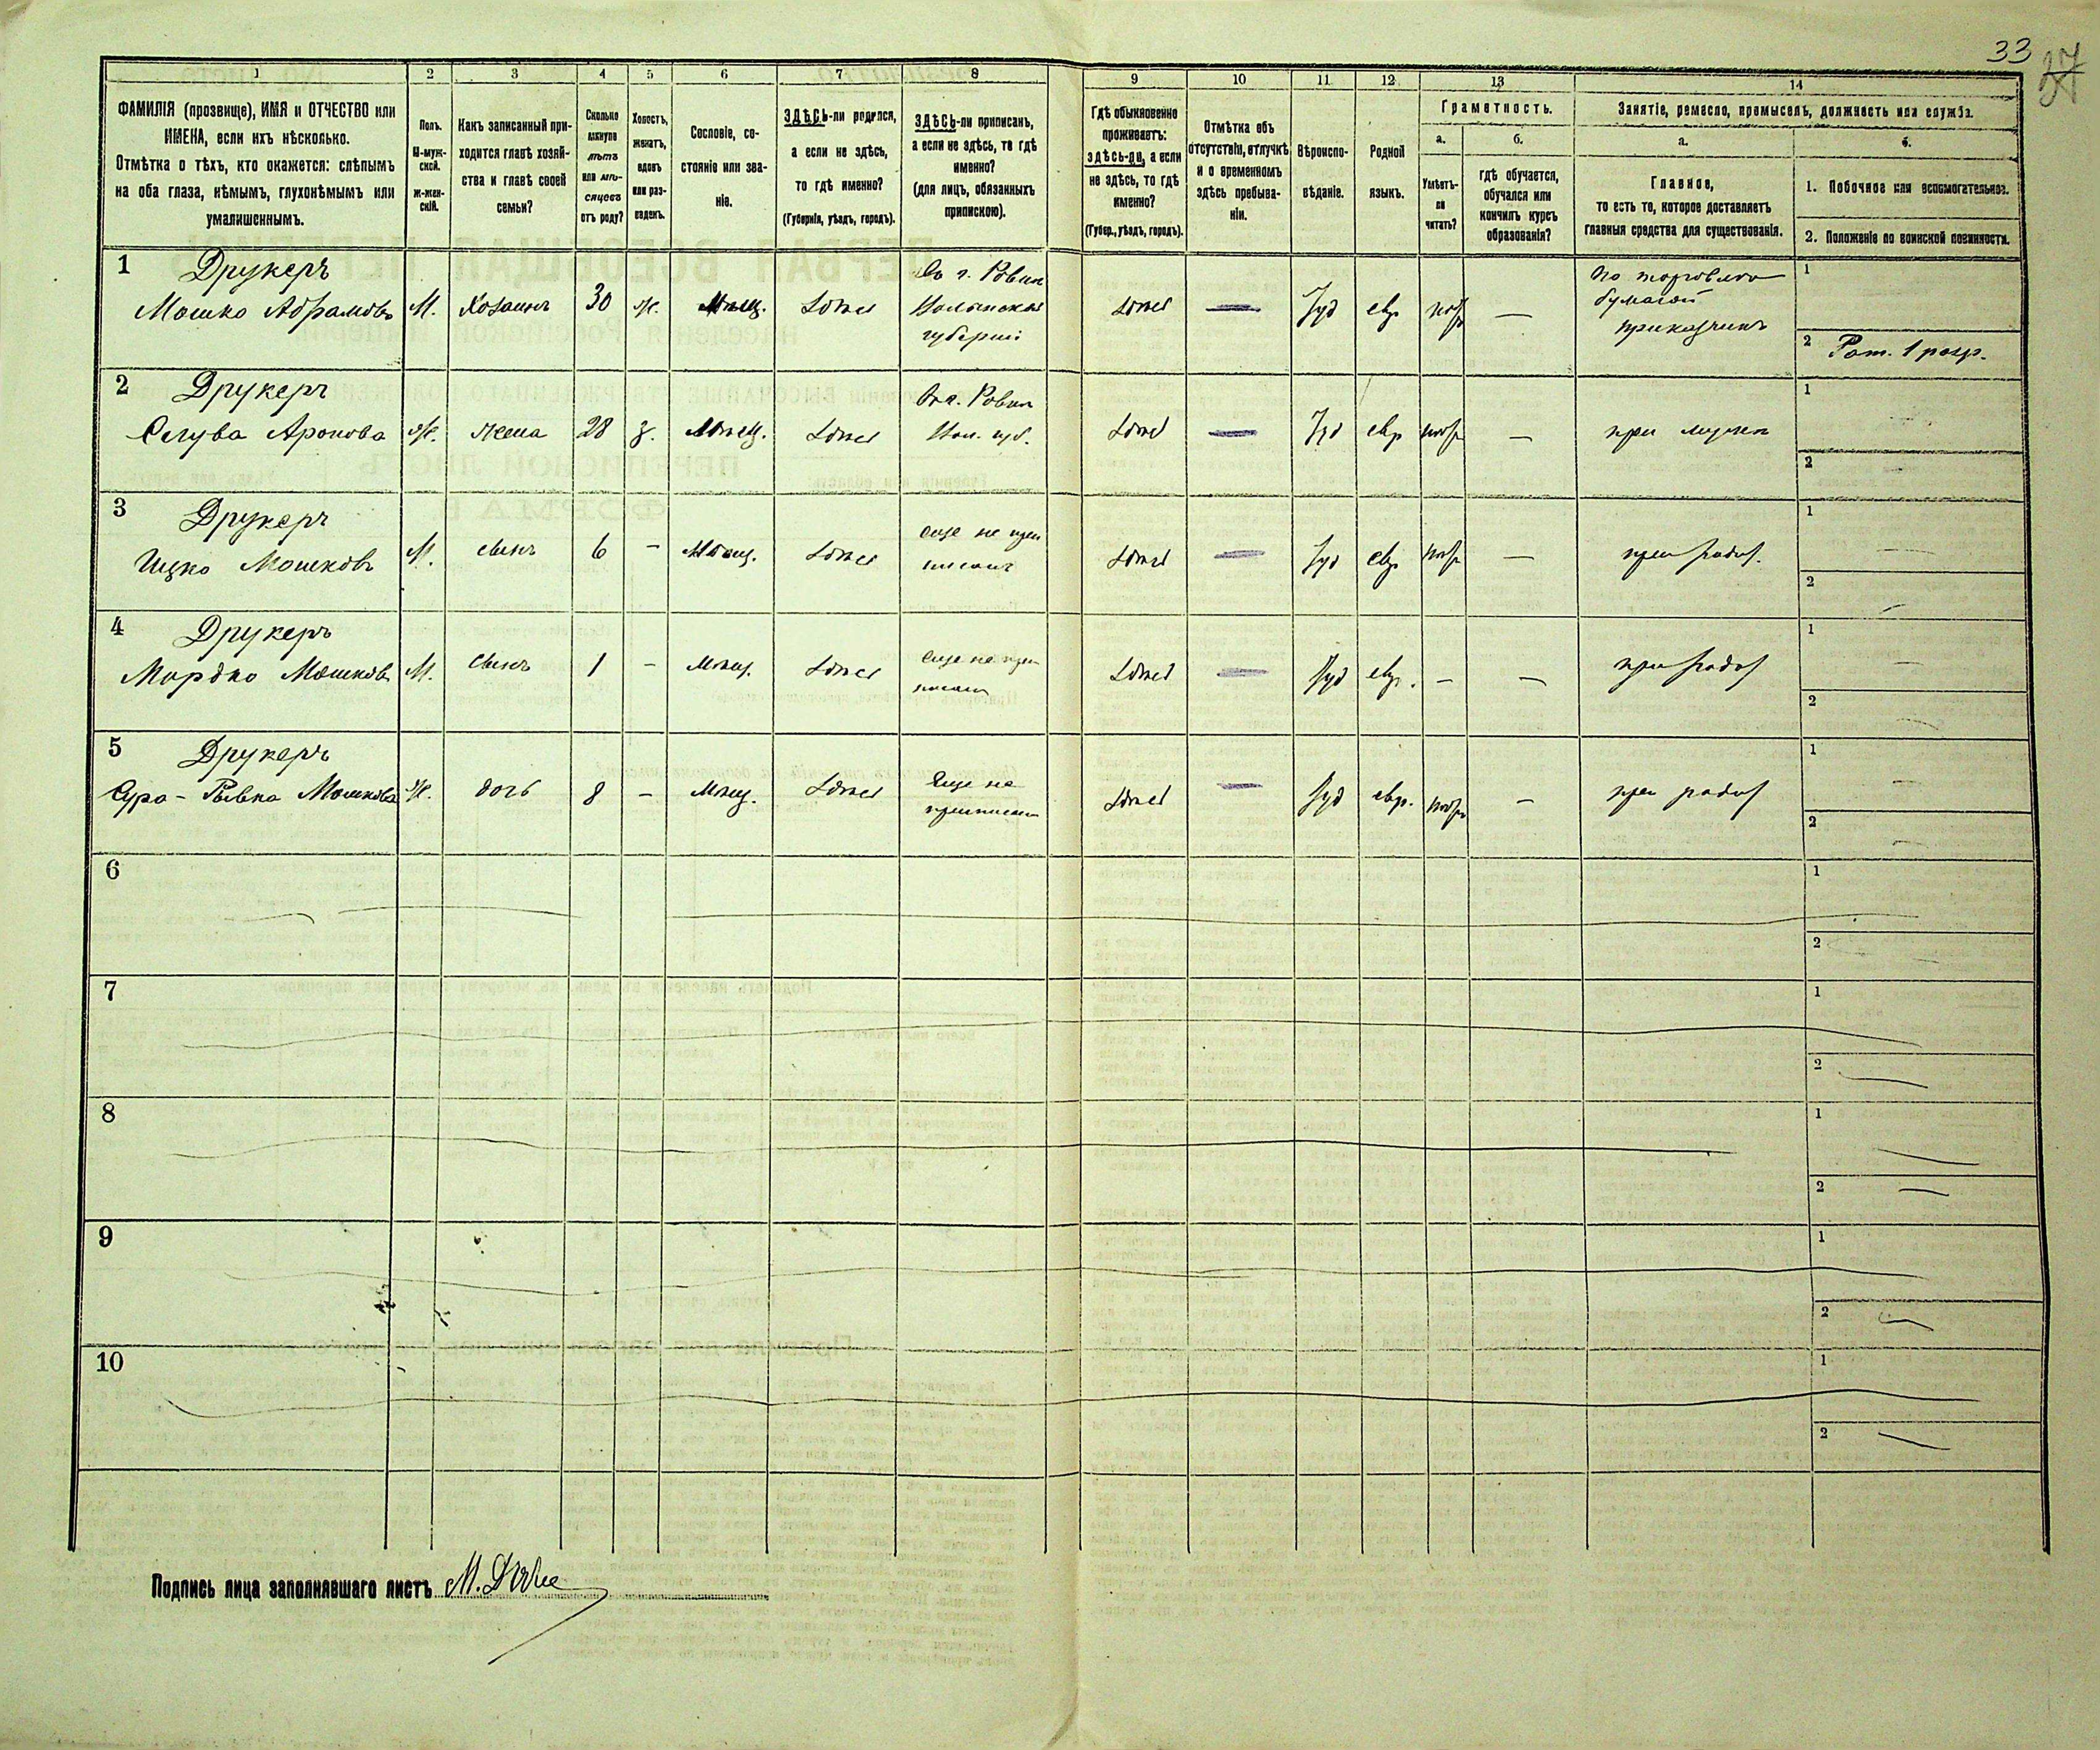 33
37
1 2 3 4 5 6 7 8 9 10 11 12 13 14
ФАМИЛІЯ (прозвище), ИМЯ и ОТЧЕСТВО или
ИМЕНА, если ихъ нѣсколько.
Отмѣтка о тѣхъ, кто окажется: слѣпымъ
на оба глаза, нѣмымъ, глухонѣмымъ или
умалишеннымъ.
Полъ.
М-муж-
ской.
Ж-жен-
скій.
Какъ записанный при-
ходится главѣ хозяй-
ства и главѣ своей
семьи?
Сколько
минуло
лѣтъ
или мѣ-
сяцевъ
отъ роду?
Холостъ,
женатъ,
вдовъ
или раз-
веденъ.
Сословіе, со-
стояніе или зва-
ніе.
ЗДѢСЬ-ли родился,
а если не здѣсь,
то гдѣ именно?
(Губернія, уѣздъ, городъ).
ЗДѢСЬ-ли приписанъ,
а если не здѣсь, то гдѣ
именно?
(для лицъ, обязанныхъ
припиской).
Гдѣ обыкновенно
проживаетъ:
здѣсь-ли, а если
не здѣсь, то гдѣ
именно?
(Губер., уѣздъ, городъ).
Отмѣтка объ
отсутствіи, отлучкѣ
и о временномъ
здѣсь пребыва-
ніи.
Вѣроиспо-
вѣданіе.
Родной
языкъ.
Грамотность.
а.
Умѣетъ-
ли
читать?
б.
гдѣ обучается,
обучался или
кончилъ курсъ
образованія?
Занятіе, ремесло, промыселъ, должность или служба.
а.
Главное,
то есть то, которое доставляетъ
главныя средства для существованія.
б.
1. Побочное или вспомогательное.
2. Положеніе по воинской повинности.
1 Друкеръ
Мошко Абрамовъ М. Хозяинъ 30 ж. Мѣщ. здѣсь
Въ г. Ровни
Волынской
губерніи
здѣсь — Іуд евр —
По торговлѣ
бумагой
приказчикъ
1
2 Рат. 1 разр.
2 Друкеръ
Слува Аронова ж. жена 28 з. Мѣщ. здѣсь
Въ г. Ровни
Вол. губ.
здѣсь — Іуд евр — при мужѣ
1
2
3 Друкеръ
Ицко Мошковъ М. сынъ 6 - Мѣщ. здѣсь
еще не при
писанъ
здѣсь — Іуд евр —
1 —
2
4 Друкеръ
Мордко Мошковъ М. сынъ 1 - Мѣщ. здѣсь
еще не при
писанъ
здѣсь — Іуд евр. - —
1 —
2 —
5 Друкеръ
Сура-Ривка Мошкова ж. дочь 8 - Мѣщ. здѣсь
Еще не
приписан
здѣсь — Іуд евр. —
1 —
2 —
6
1
2
7
1
2
8
1
2
9
1
2
10
1
2
Подпись лица заполнявшаго листъ